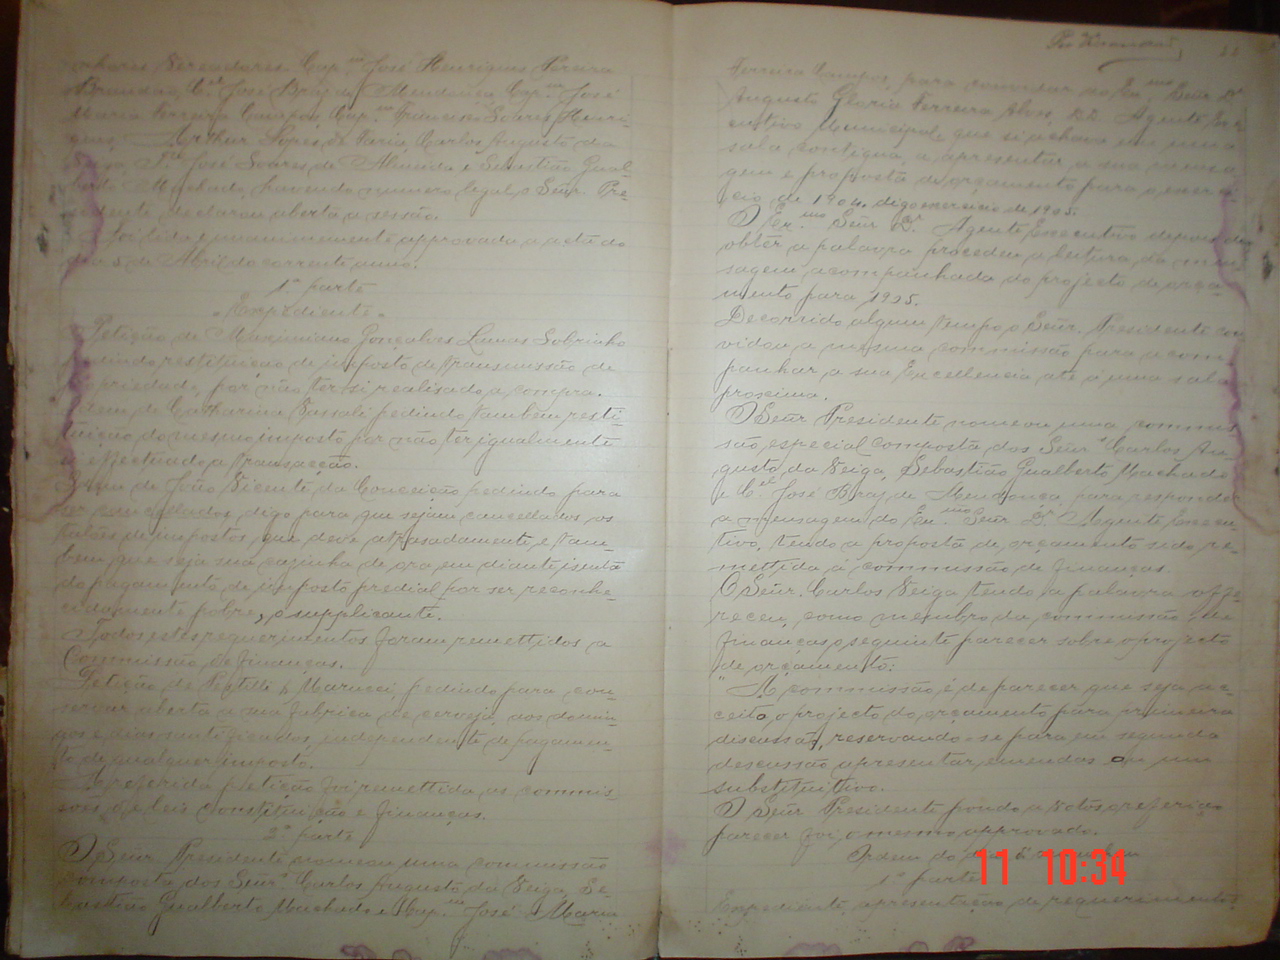 Vereadores Cap.m José Henriques Pereira
Brandão, C.el José Braz de Mendonça, Cap.m José
Maria Ferreira Campos, Cap.m Francisco Soares Henri-
ques, Arthur Lopes de Faria, Carlos Augusto da
José Soares de Almeida e Sebastião Gual-
berto Machado, havendo numero legal o Señr. Pre-
sidente declarou aberta a sessão.
Foi lida e unanimemente approvada a acta do
dia 5 de Abril do corrente anno.
1ª parte
"Expediente"
Petição de Maximiano Gonçalves Lamas Sobrinho
pedindo restituição de imposto de transmissão de
propriedade, por não ter si realisado a compra.
Idem de Catharina Vassali pedindo tambem resti-
tuição do mesmo imposto por não ter igualmente
effectuado a transacção.
Idem de João Vicente da Conceição pedindo para
ser cancellados, digo para que sejam cancellados os
talões de impostos, que deve atrasadamente e tam-
bem que seja sua cazinha de ora em diante isenta
do pagamento de imposto predial por ser reconhe-
cidamente pobre, o supplicante.
Todos estes requerimentos foram remettidos a
Commissão de finanças.
Petição de Marucci, pedindo para con-
servar aberta a sua fabrica de cerveja, aos domin-
gos e dias santificados, independente de pagamen-
to de qualquer imposto.
A referida petição foi remettida as commis-
sões de leis constituição e finanças.
2ª parte
O Señr. Presidente nomeou uma commissão
composta dos Señr.s Carlos Augusto da Veiga, Se-
bastião Gualberto Machado e Cap.m José Maria
Ferreira Campos, para convidar ao Ex.mo Señr Dr
Augusto Gloria Ferreira Alves, DD. Agente Exe-
cutivo Municipal, que si achava em uma
sala contigua, a apresentar a sua mensa-
gem e proposta de orçamento para o exerci-
cio de 1904. digo exercicio de 1905.
O Ex.mo Señr Dr. Agente Executivo depois de
obter a palavra procedeu a leitura da men-
sagem acompanhada do projecto de orça-
mento para 1905.
Decorrido algum tempo o Señr. Presidente con-
vidou a mesma commissão para acom-
panhar a sua Excellencia até á uma sala
proxima.
O Señr Presidente nomeou uma commis-
são especial composta dos Señr.s Carlos Au-
gusto da Veiga, Sebastião Gualberto Machado
e C.el José Braz de Mendonça para responder
a mensagem do Ex.mo Señr Dr. Agente Execu-
tivo, tendo a proposta de orçamento sido re-
mettida á commissão de finanças.
O Señr. Carlos Veiga tendo a palavra offe-
receu, como membro da commissão de
finanças o seguinte parecer sobre o projecto
de orçamento:
"A commissão é de parecer que seja ac-
ceito, o projecto do orçamento para primeira
discussão, reservando-se para em segunda
descussão apresentar emendas ou um
substituitivo.
O Señr Presidente pondo a votos o referido
parecer foi o mesmo approvado.
Ordem do
1ª parte
Expediente, apresentação de requerimentos
11 10:34